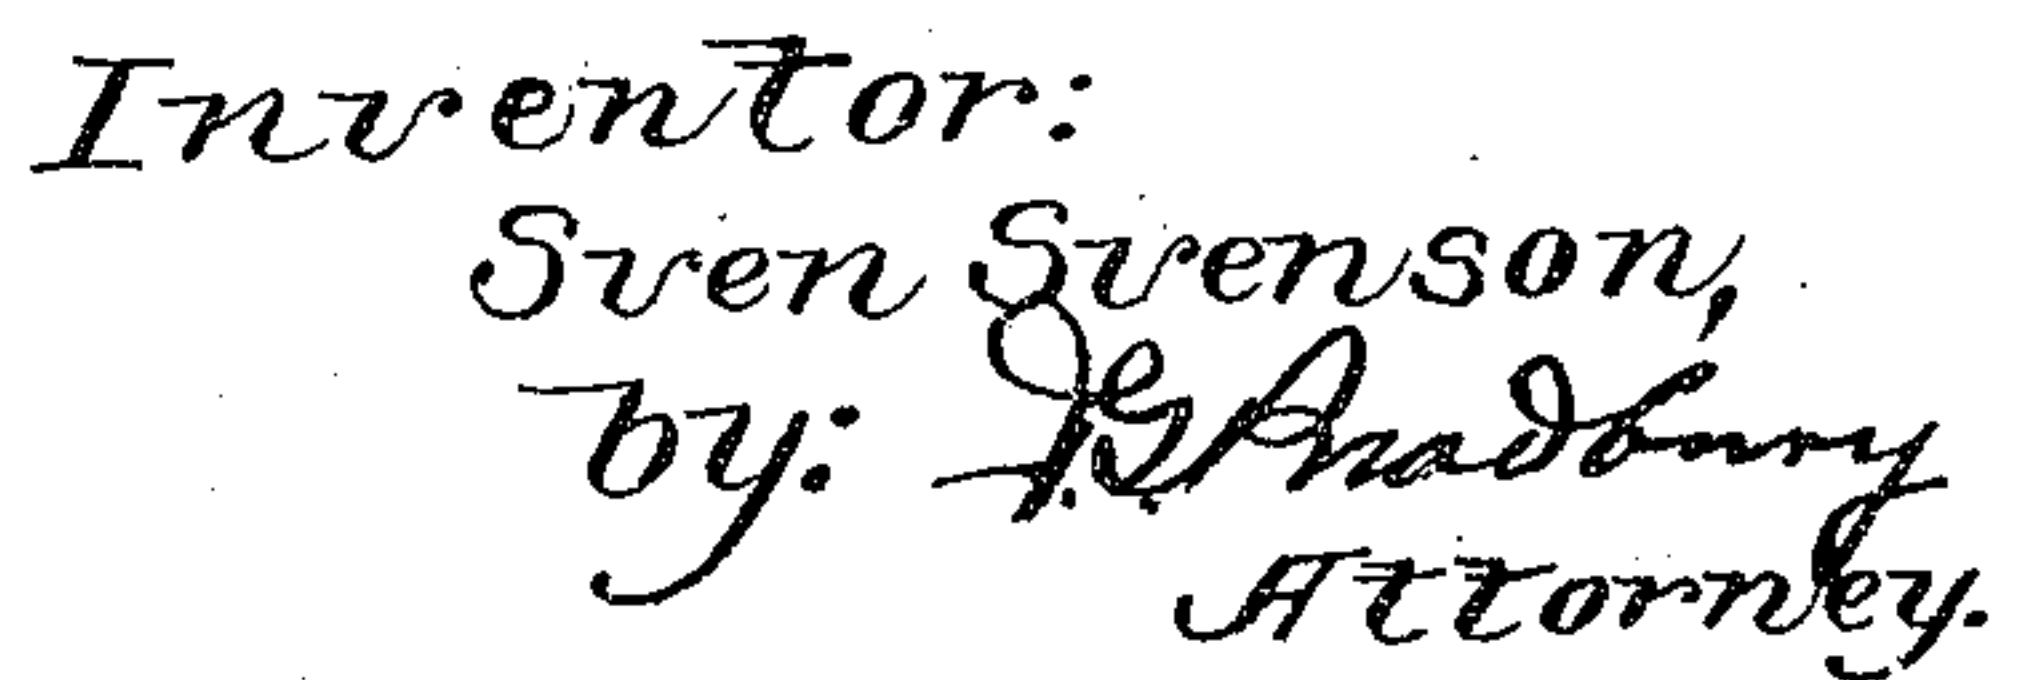 Inventor:
Sven Svenson,
by: Bradbury
Attorney.